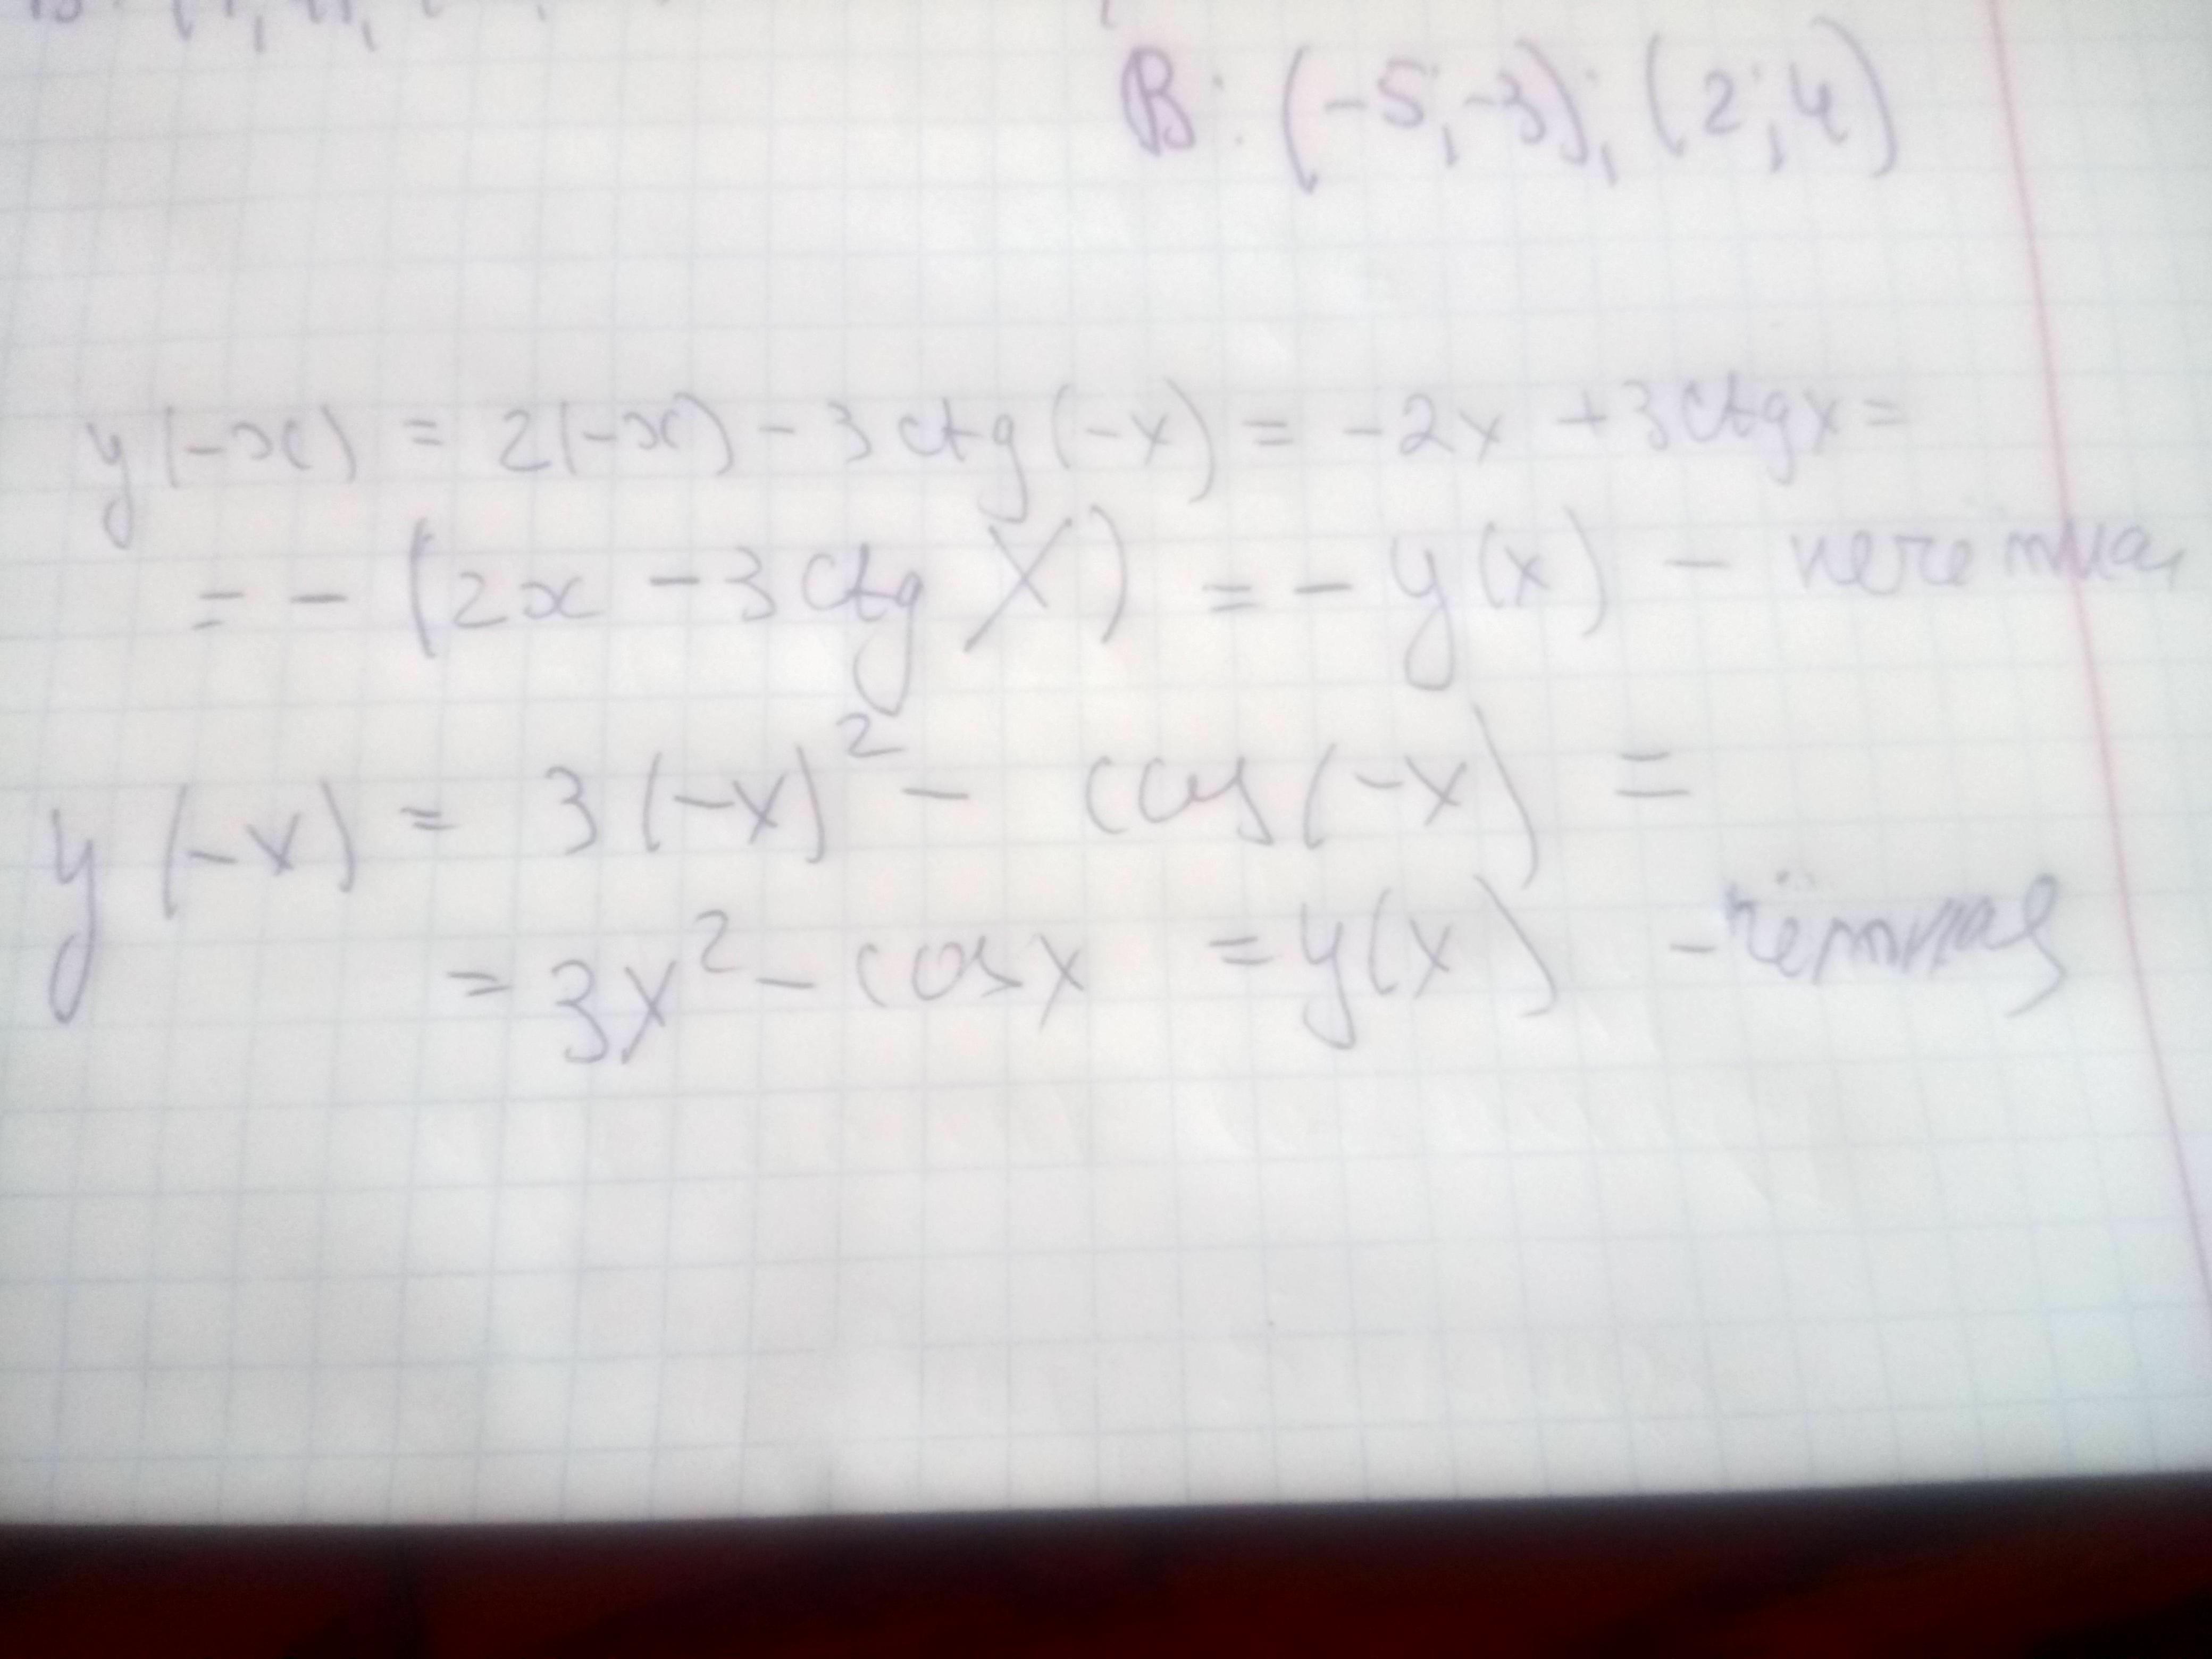 В: (-5;-3); (2;4)
y(-x) = 2(-x) - 3ctg(-x) = -2x + 3ctgx =
= - (2x - 3ctg x) = - y(x) - нечетная
y(-x) = 3(-x)² - cos(-x) =
= 3x² - cosx = y(x) - чётная